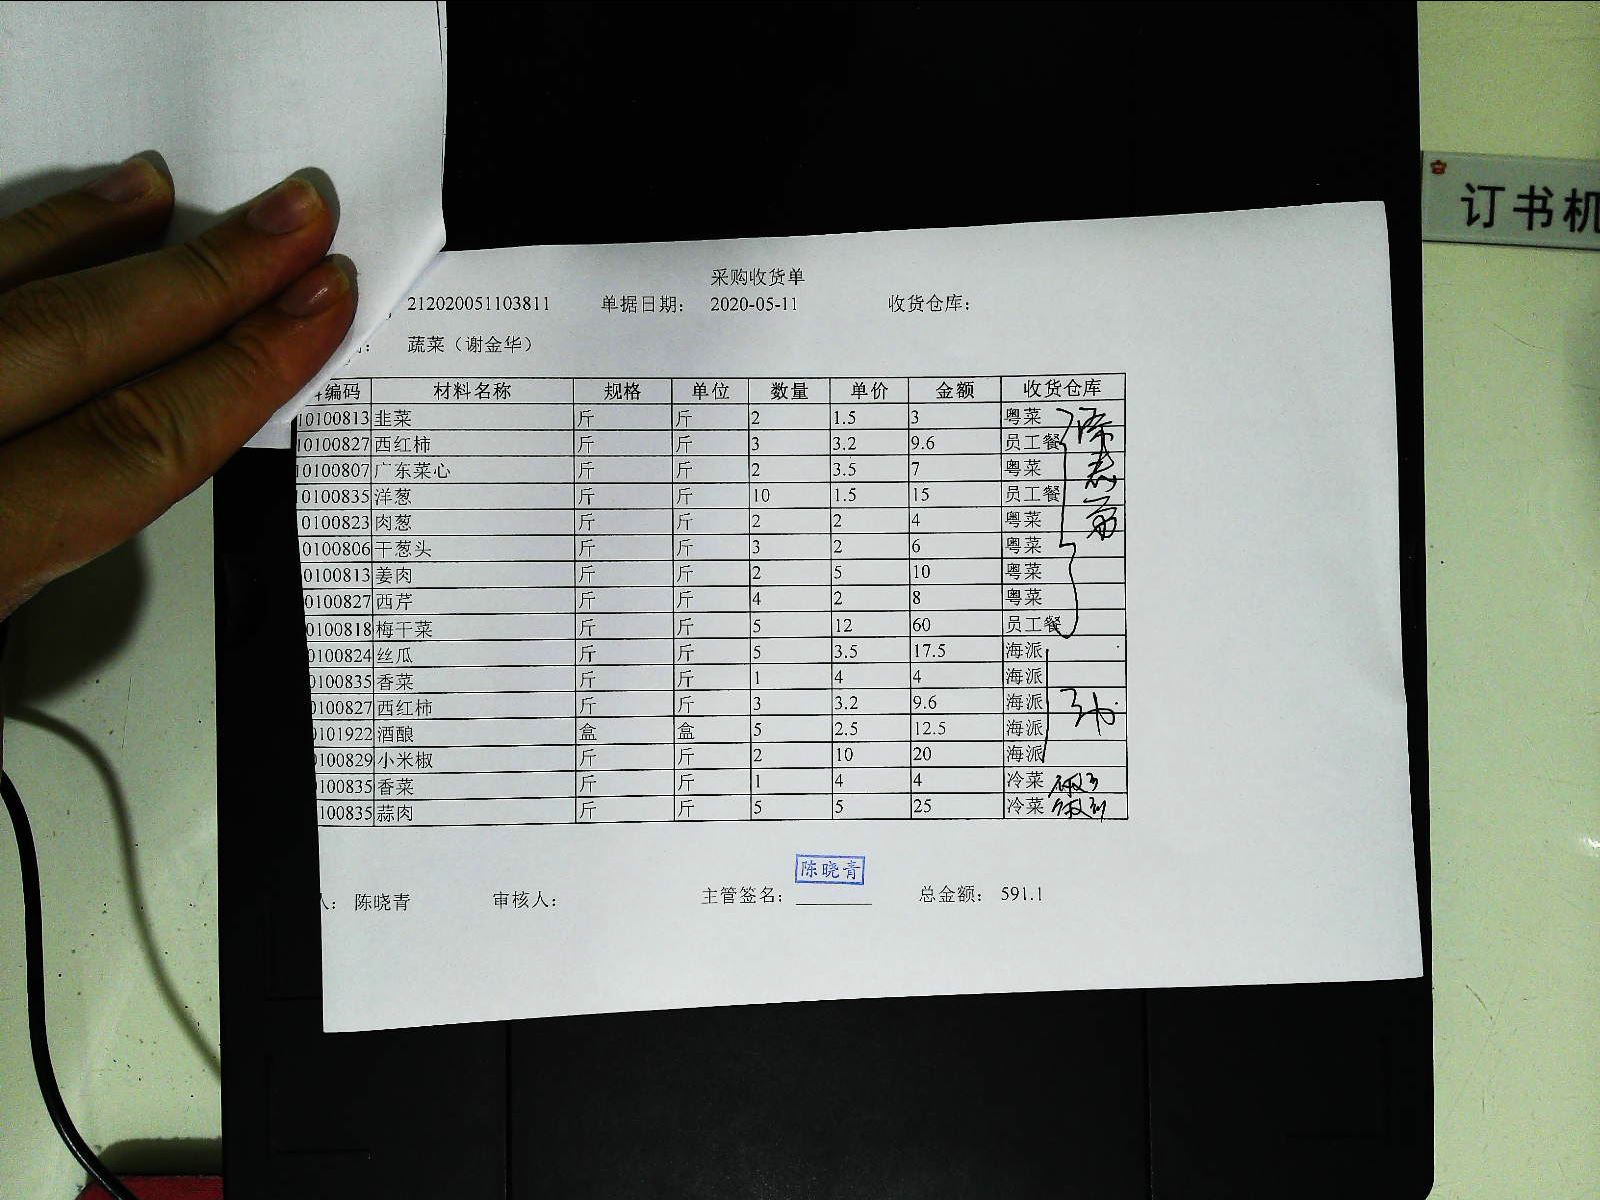 订书机
采购收货单
212020051103811 单据日期: 2020-05-11 收货仓库:
蔬菜（谢金华）
编码 材料名称 规格 单位 数量 单价 金额 收货仓库
10100813 韭菜 斤 斤 2 1.5 3 粤菜
10100827 西红柿 斤 斤 3 3.2 9.6 员工餐
10100807 广东菜心 斤 斤 2 3.5 7 粤菜
10100835 洋葱 斤 斤 10 1.5 15 员工餐
0100823 肉葱 斤 斤 2 2 4 粤菜
0100806 干葱头 斤 斤 3 2 6 粤菜
0100813 姜肉 斤 斤 2 5 10 粤菜
0100827 西芹 斤 斤 4 2 8 粤菜
0100818 梅干菜 斤 斤 5 12 60 员工餐
0100824 丝瓜 斤 斤 5 3.5 17.5 海派
0100835 香菜 斤 斤 1 4 4 海派
0100827 西红柿 斤 斤 3 3.2 9.6 海派
0101922 酒酿 盒 盒 5 2.5 12.5 海派
0100829 小米椒 斤 斤 2 10 20 海派
100835 香菜 斤 斤 1 4 4 冷菜
100835 蒜肉 斤 斤 5 5 25 冷菜
陈晓青
人: 陈晓青 审核人: 主管签名: 总金额: 591.1